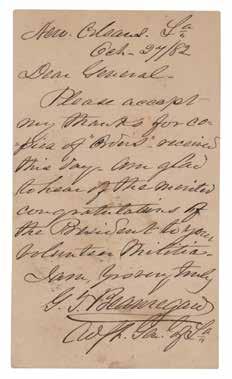 New Orleans, La
Oct- 27/82
Dear General-
Please accept
my thanks for co-
pies of "Orders" received
this day. Am glad
to hear of the merited
congratulations of
the President to your
volunteer Militia.
I am, yours very truly
G. T. Beauregard
of La